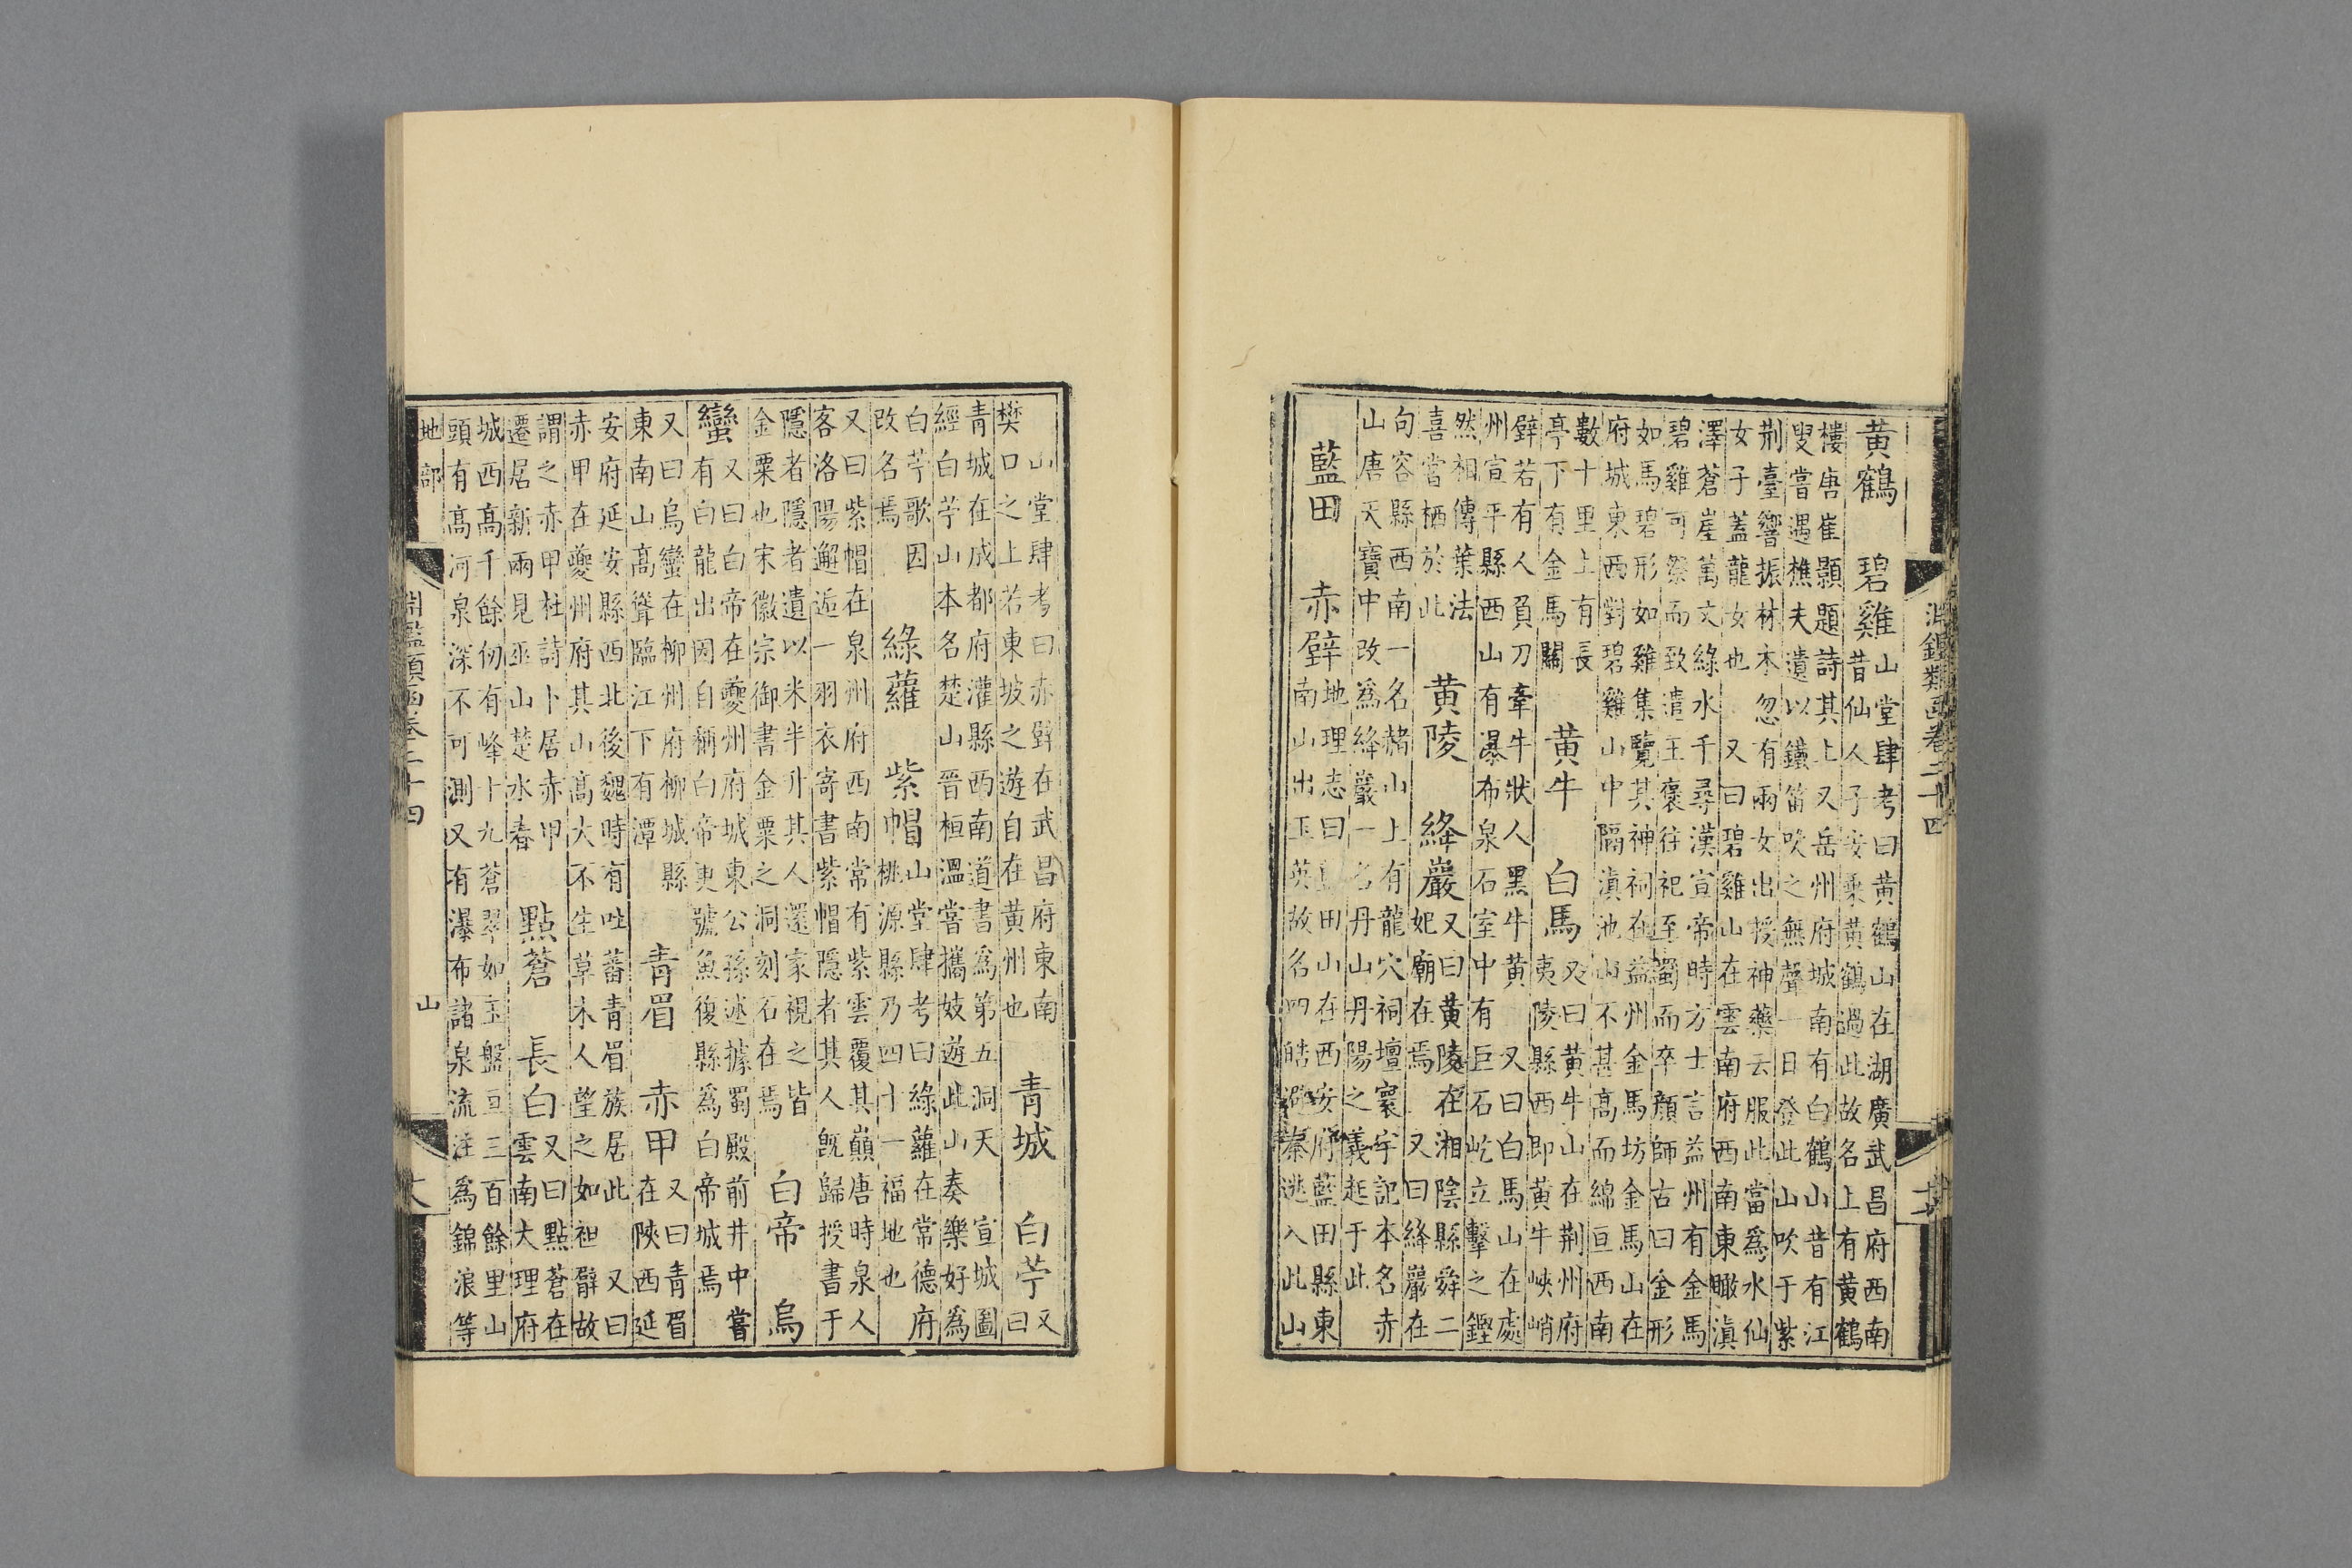 淵鑑類函卷二十四
黄鶴 碧雞 山堂肆考曰黄鶴山在湖廣武昌府西南
昔仙人子安乘黄鶴過此故名上有黄鶴
樓唐崔顥題詩其上又岳州府城南有白鶴山昔有江
叟嘗遇樵夫遺以鐵笛吹之無聲一日登此山吹于紫
荆臺響振林木忽有兩女出授神藥云服此當爲水仙
女子蓋龍女也 又曰碧雞山在雲南府西南東瞰滇
澤蒼崖萬丈綠水千尋漢宣帝時方士言益州有金馬
碧雞可祭而致遣王褒往祀至蜀而卒顔師古曰金形
如馬碧形如雞集覽其神祠在益州金馬坊金馬山在
府城東西對碧雞山中隔滇池山不甚高而綿亘西南
數十里上有長
亭下有金馬關
黄牛 白馬 又曰黄牛山在荆州府
夷陵縣西即黄牛峽峭
壁若有人負刀牽牛狀人黑牛黄 又曰白馬山在處
州宣平縣西山有瀑布泉石室中有巨石屹立擊之鏗
然相傳葉法
喜嘗栖於此
黄陵 絳巖 又曰黄陵在湘陰縣舜二
妃廟在焉 又曰絳巖在
句容縣西南一名赭山上有龍穴祠壇寰宇記本名赤
山唐天寶中改爲絳巖一名丹山丹陽之義起于此
藍田 赤壁 地理志曰藍田山在西安府藍田縣東
南山出玉英故名四皓避秦逃入此山
山堂肆考曰赤壁在武昌府東南
樊口之上若東坡之遊自在黄州也
青城 白苧 又
曰
青城在成都府灌縣西南道書爲第五洞天 宣城圖
經白苧山本名楚山晉桓溫嘗攜妓遊此山奏樂好爲
白苧歌因
改名焉
綠蘿 紫帽 山堂肆考曰綠蘿在常德府
桃源縣乃四十一福地也
又曰紫帽在泉州府西南常有紫雲覆其巔唐時泉人
客洛陽邂逅一羽衣寄書紫帽隱者其人旣歸授書于
隱者隱者遺以米半升其人還家視之皆
金粟也宋徽宗御書金粟之洞刻石在焉
白帝 烏
蠻 又曰白帝在夔州府城東公孫述據蜀殿前井中嘗
有白龍出因自稱白帝更號魚復縣爲白帝城焉
又曰烏蠻在柳州府柳城縣
東南山高聳臨江下有潭
青眉 赤甲 又曰青眉
在陝西延
安府延安縣西北後魏時有吐蕃青眉族居此 又曰
赤甲在夔州府其山高大不生草木人望之如袒臂故
謂之赤甲杜詩卜居赤甲
遷居新兩見巫山楚水春
點蒼 長白 又曰點蒼在
雲南大理府
城西高千餘仞有峰十九蒼翠如玉盤亘三百餘里山
頭有高河泉深不可測又有瀑布諸泉流注爲錦浪等
地部
淵鑑類函卷二十四
山